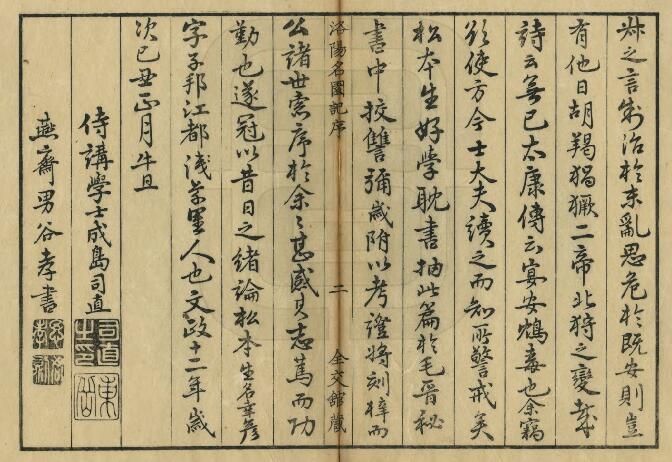 叔之言制治於未亂思危於既安則豈
有他日胡羯猖獗二帝北狩之變哉
詩云無已太康傳云宴安鴆毒也余竊
欲使方今士大夫讀之而知所警戒矣
松本生好學耽書抽此篇於毛晉秘
書中挍讐彌歲附以考證將刻梓而
洛陽名園記序 二 全交館藏
公諸世索序於余〻甚感其志篤而功
勤也遂冠以昔日之緒論松本生名幸彥
字子邦江都淺草里人也文政十二年歲
次己丑正月旦
侍講學士成島司直
司直之印
燕齋男谷孝書